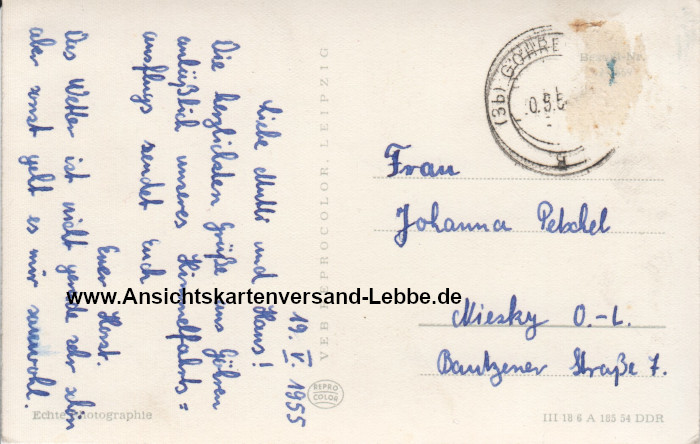 19. V. 1955
Liebe Mutti und Hans!
Die herzlichsten Grüße aus Göhren
anläßlich unseres Himmelfahrts=
ausflugs sendet Euch
Euer Horst.
Das Wetter ist nicht gerade sehr schön
aber sonst geht es mir sauwohl.
VEB REPROCOLOR, LEIPZIG
(3b) GÖHRE
Frau
Johanna Petschel
Niesky O.-L.
Bautzener Straße 7.
www.Ansichtskartenversand-Lebbe.de
REPRO
COLOR
Echte Photographie
III 18 6 A 185 54 DDR